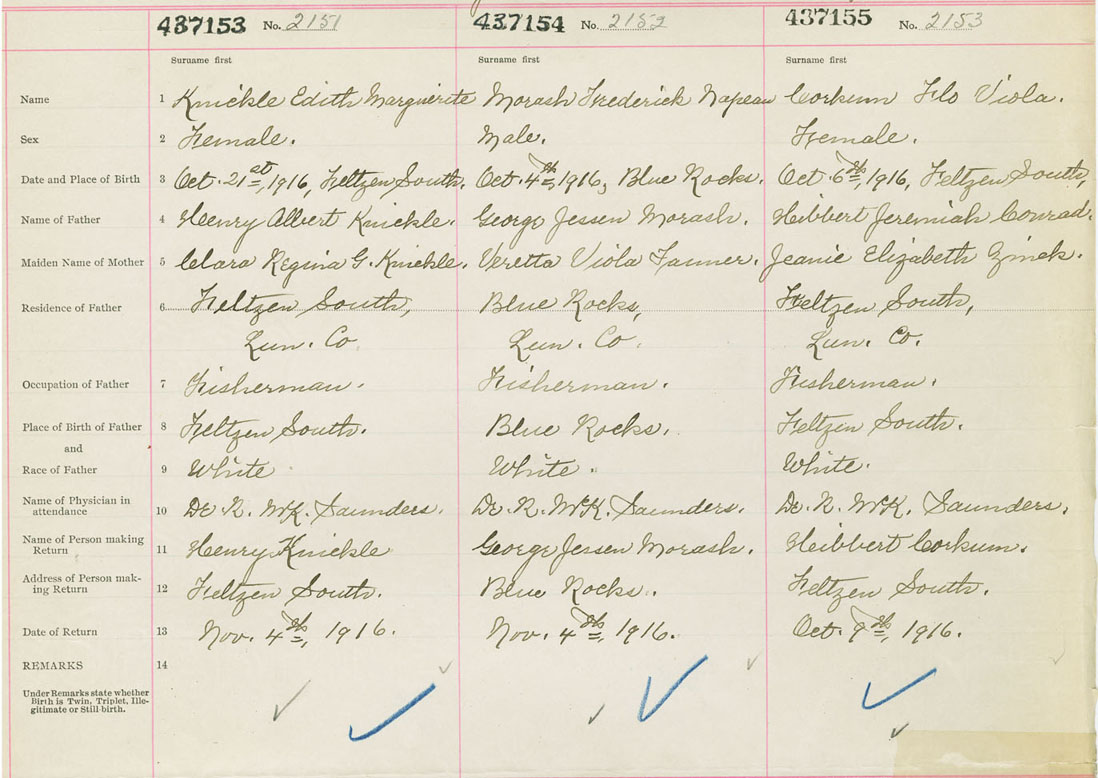 437153 No. 2151 437154 No. 2152 437155 No. 2153
Surname first Surname first Surname first
Name 1 Knickle Edith Marguerite Morash Frederick Napean Corkum Flo Viola.
Sex 2 Female. Male. Female.
Date and Place of Birth 3 Oct. 21st, 1916, Feltzen South. Oct. 4th, 1916, Blue Rocks. Oct. 6th, 1916, Feltzen South,
Name of Father 4 Henry Albert Knickle. George Jessen Morash. Heibbert Jeremiah Conrad.
Maiden Name of Mother 5 Clara Regina G. Knickle. Veretta Viola Tanner. Jeanie Elizabeth Zinck.
Residence of Father 6 Feltzen South, Blue Rocks, Feltzen South,
Lun. Co. Lun. Co. Lun. Co.
Occupation of Father 7 Fisherman. Fisherman. Fisherman.
Place of Birth of Father 8 Feltzen South. Blue Rocks. Feltzen South.
and
Race of Father 9 White White. White.
Name of Physician in
attendance 10 Dr. R. McK. Saunders. Dr. R. McK. Saunders. Dr. R. McK. Saunders.
Name of Person making
Return 11 Henry Knickle George Jessen Morash. Heibbert Corkum.
Address of Person mak-
ing Return 12 Feltzen South. Blue Rocks. Feltzen South.
Date of Return 13 Nov. 4th, 1916. Nov. 4th, 1916. Oct. 9th, 1916.
REMARKS 14
Under Remarks state whether
Birth is Twin, Triplet, Ille-
gitimate or Still-birth.